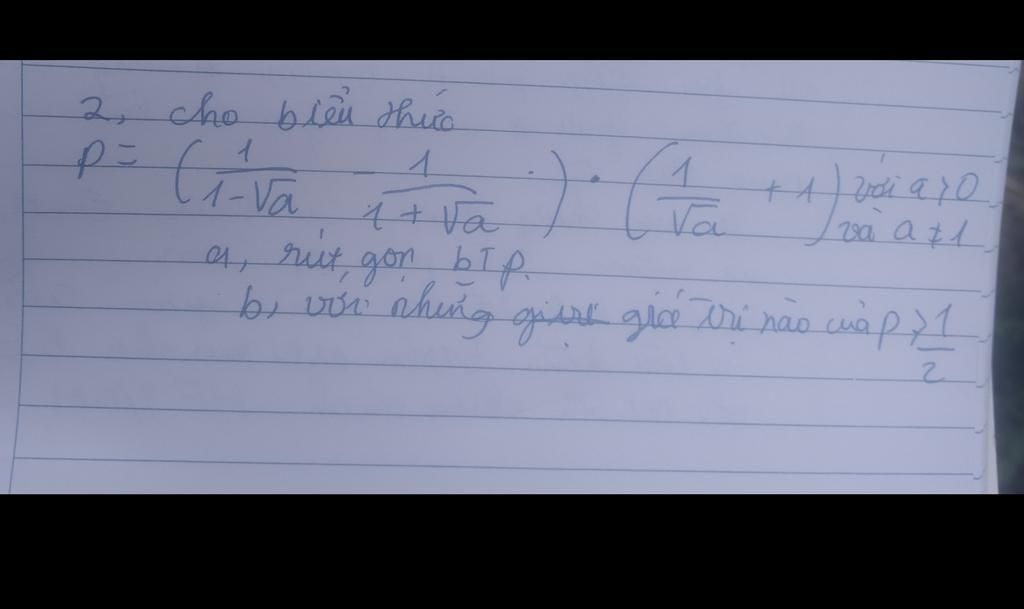 2, cho biểu thức
P = (1/(1-√a) - 1/(1+√a)) . (1/√a + 1) với a > 0
và a ≠ 1
a, rút gọn bT p.
b, với những giá trị nào của p > 1/2